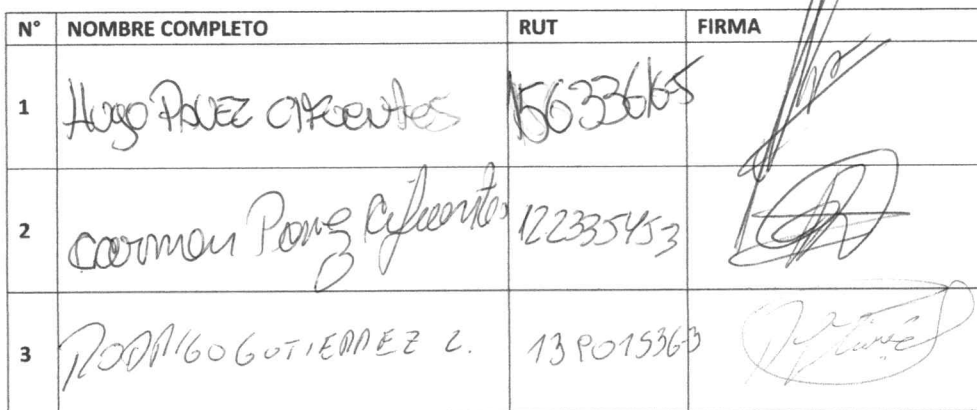 N° NOMBRE COMPLETO RUT FIRMA
1 Hugo PAVEZ CIFUENTES 15633616-5
2 Carmen Pavez Cifuentes 122335453
3 RODRIGO GUTIERREZ L.